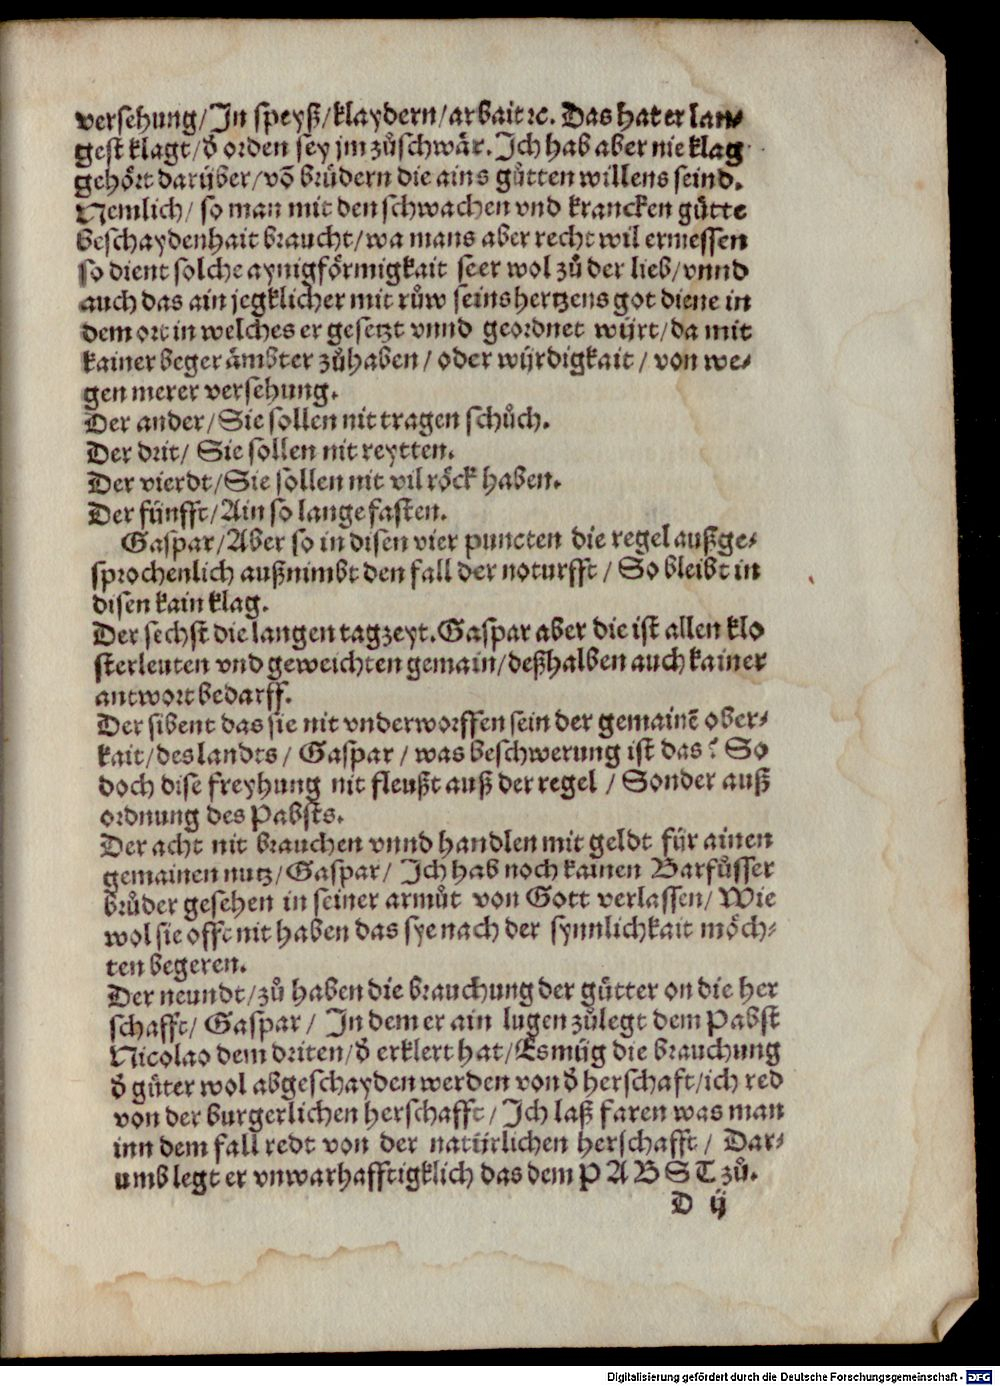 versehung/In speyß/klaydern/arbait ꝛc. Das hat er lan⸗
gest klagt/đ orden sey jm zůschwär. Ich hab aber nie klag
gehört darüber/võ brüdern die ains gůtten willens seind.
Nemlich/ so man mit den schwachen vnd krancken gůtte
beschaydenhait braucht/wa mans aber recht wil ermessen
so dient solche aynigförmigkait seer wol zů der lieb/vnnd
auch das ain jegklicher mit růw seins hertzens got diene in
dem ort in welches er gesetzt vnnd geordnet wijrt/da mit
kainer beger ämbter zůhaben/ oder wijrdigkait/ von we⸗
gen merer versehung.
Der ander/Sie sollen nit tragen schůch.
Der drit/ Sie sollen nit reytten.
Der vierdt/Sie sollen nit vil röck haben.
Der fünfft/Ain so lange fasten.
Gaspar/Aber so in disen vier puncten die regel außge⸗
sprochenlich außnimbt den fall der noturfft/ So bleibt in
disen kain klag.
Der sechst die langen tagzeyt. Gaspar aber die ist allen klo
sterleuten vnd geweichten gemain/deßhalben auch kainer
antwort bedarff.
Der sibent das sie nit vnderworffen sein der gemainẽ ober⸗
kait/des landts/ Gaspar/ was beschwerung ist das? So
doch dise freyhung nit fleußt auß der regel/ Sonder auß
ordnung des Pabsts.
Der acht nit brauchen vnnd handlen mit geldt für ainen
gemainen nutz/Gaspar/ Ich hab noch kainen Barfůsser
brůder gesehen in seiner armůt von Gott verlassen/ Wie
wol sie offt nit haben das sye nach der synnlichkait möch⸗
ten begeren.
Der neundt/zů haben die brauchung der gütter on die her
schafft/ Gaspar/ In dem er ain lugen zůlegt dem Pabst
Nicolao dem driten/đ erklert hat/Es müg die brauchung
đ güter wol abgeschayden werden von đ herschaft/ich red
von der burgerlichen herschafft/ Ich laß faren was man
inn dem fall redt von der natürlichen herschafft/ Dar⸗
umb legt er vnwarhafftigklich das dem P A B S T zů.
D ij
Digitalisierung gefördert durch die Deutsche Forschungsgemeinschaft - DFG